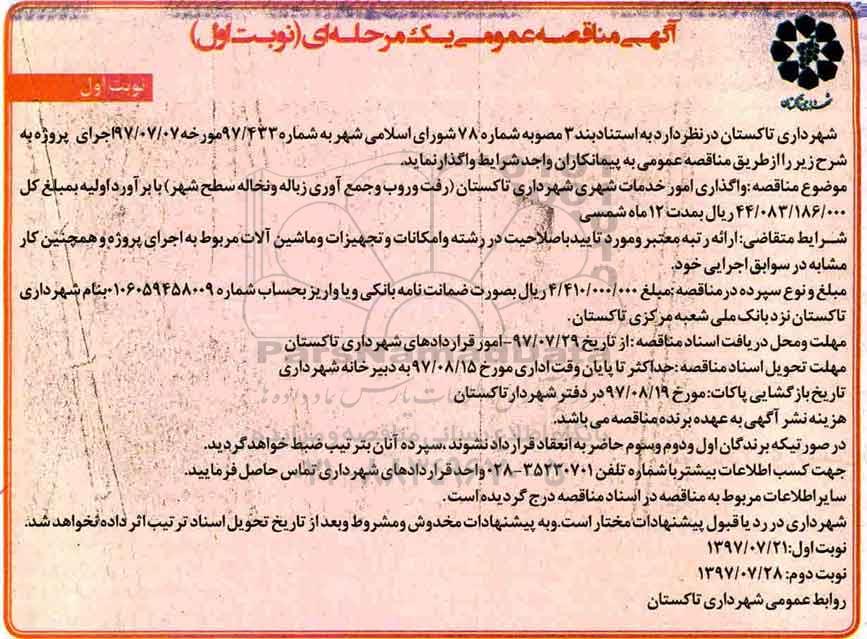 آگهی مناقصه عمومی یک مرحله‌ای (نوبت اول)
شهرداری تاکستان
نوبت اول
شهرداری تاکستان درنظر دارد به استناد بند ۳ مصوبه شماره ۷۸ شورای اسلامی شهر به شماره ۹۷/۴۳۳ مورخه ۹۷/۰۷/۰۷ اجرای پروژه به
شرح زیر را از طریق مناقصه عمومی به پیمانکاران واجد شرایط واگذار نماید.
موضوع مناقصه: واگذاری امور خدمات شهری شهرداری تاکستان (رفت وروب وجمع آوری زباله ونخاله سطح شهر) با برآورد اولیه بمبلغ کل
۴۴/۰۸۳/۱۸۶/۰۰۰ ریال بمدت ۱۲ ماه شمسی
شرایط متقاضی: ارائه رتبه معتبر ومورد تایید باصلاحیت در رشته وامکانات و تجهیزات وماشین آلات مربوط به اجرای پروژه و همچنین کار
مشابه در سوابق اجرایی خود.
مبلغ و نوع سپرده در مناقصه: مبلغ ۴/۴۱۰/۰۰۰/۰۰۰ ریال بصورت ضمانت نامه بانکی و یا واریز بحساب شماره ۰۱۰۶۰۵۹۴۵۸۰۰۹ بنام شهرداری
تاکستان نزد بانک ملی شعبه مرکزی تاکستان.
مهلت ومحل دریافت اسناد مناقصه: از تاریخ ۹۷/۰۷/۲۹- امور قراردادهای شهرداری تاکستان
مهلت تحویل اسناد مناقصه: حداکثر تا پایان وقت اداری مورخ ۹۷/۰۸/۱۵ به دبیرخانه شهرداری
تاریخ بازگشایی پاکات: مورخ ۹۷/۰۸/۱۹ در دفتر شهردار تاکستان
هزینه نشر آگهی به عهده برنده مناقصه می باشد.
در صورتیکه برندگان اول ودوم وسوم حاضر به انعقاد قرارداد نشوند، سپرده آنان بترتیب ضبط خواهد گردید.
جهت کسب اطلاعات بیشتر با شماره تلفن ۳۵۲۳۰۷۰۱-۰۲۸ واحد قراردادهای شهرداری تماس حاصل فرمایید.
سایر اطلاعات مربوط به مناقصه در اسناد مناقصه درج گردیده است.
شهرداری در رد یا قبول پیشنهادات مختار است. وبه پیشنهادات مخدوش ومشروط وبعد از تاریخ تحویل اسناد ترتیب اثر داده نخواهد شد.
نوبت اول: ۱۳۹۷/۰۷/۲۱
نوبت دوم: ۱۳۹۷/۰۷/۲۸
روابط عمومی شهرداری تاکستان
ParsNamadData